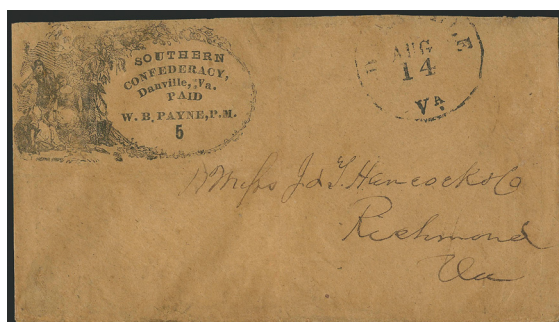 SOUTHERN
CONFEDERACY,
Danville, Va.
PAID
W. B. PAYNE, P.M.
5
DANVILLE
AUG
14
VA
Messrs J & T. Hancock & Co
Richmond
Va